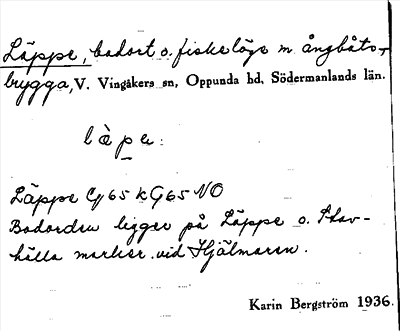 Läppe, badort o. fiskeläge m ångbåts-
brygga, V. Vingåkers sn, Oppunda hd, Södermanlands län.
läpe:
Läppe Cg65 kG65 NO
Badorden ligger på Läppe o. Skav-
hälla marker vid Hjälmaren.
Karin Bergström 1936.